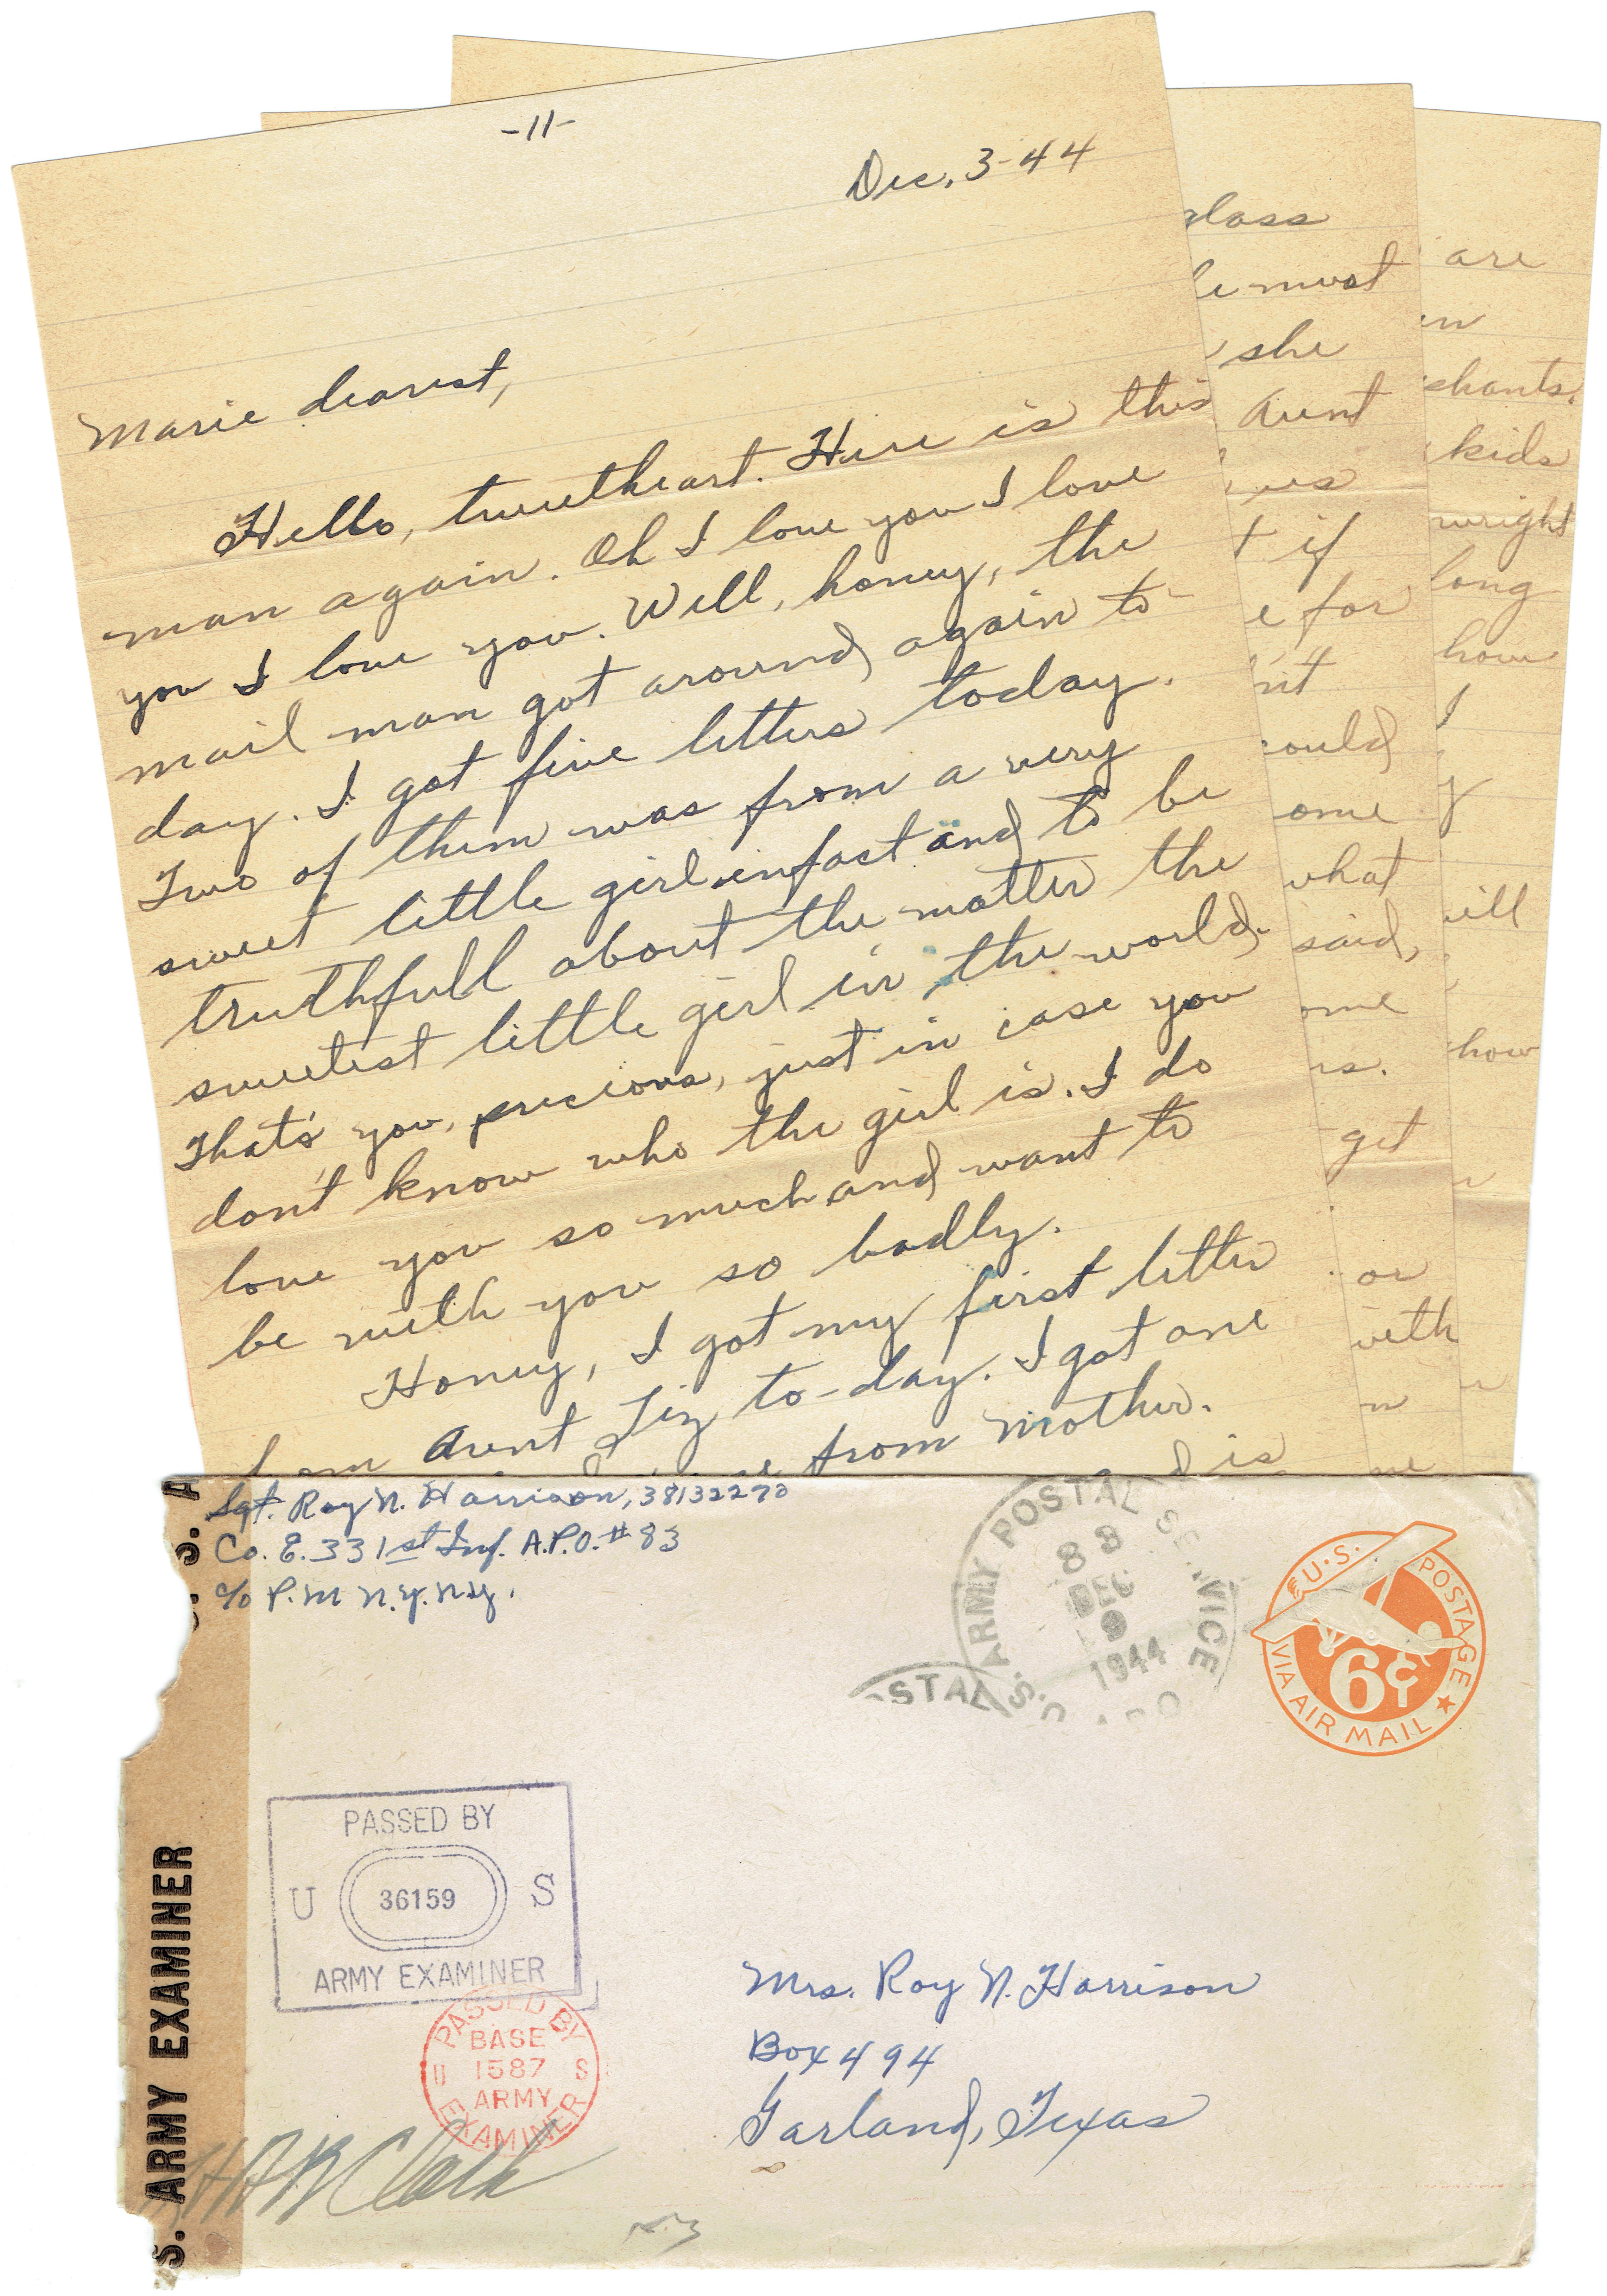 -11-
Dec. 3-44
Marie dearest,
Hello, sweetheart. Here is this
man again. Oh I love you I love
you I love you. Well, honey, the
mail man got around again to-
day. I got five letters today.
Two of them was from a very
sweet little girl infact and to be
truthfull about the matter the
sweetest little girl in the world.
That's you, precious, just in case you
don't know who the girl is. I do
love you so much and want to
be with you so badly.
Honey, I got my first letter
Aunt Liz to-day. I got one
from mother.
is
glass
must
she
Aunt
if
for
could
what
said,
get
or
with
are
kids
long
how
I
how
Sgt. Roy N. Harrison, 38132270
Co. E. 331st Inf. A.P.O. #83
c/o P.M N.Y. N.Y.
ARMY POSTAL SERVICE
83
DEC
9
1944
A.P.O.
POSTAL
U.S. POSTAGE
6¢
VIA AIR MAIL
PASSED BY
U 36159 S
ARMY EXAMINER
PASSED BY
BASE
U 1587 S
ARMY
EXAMINER
S. ARMY EXAMINER
Clark
Mrs. Roy N. Harrison
Box 494
Garland, Texas